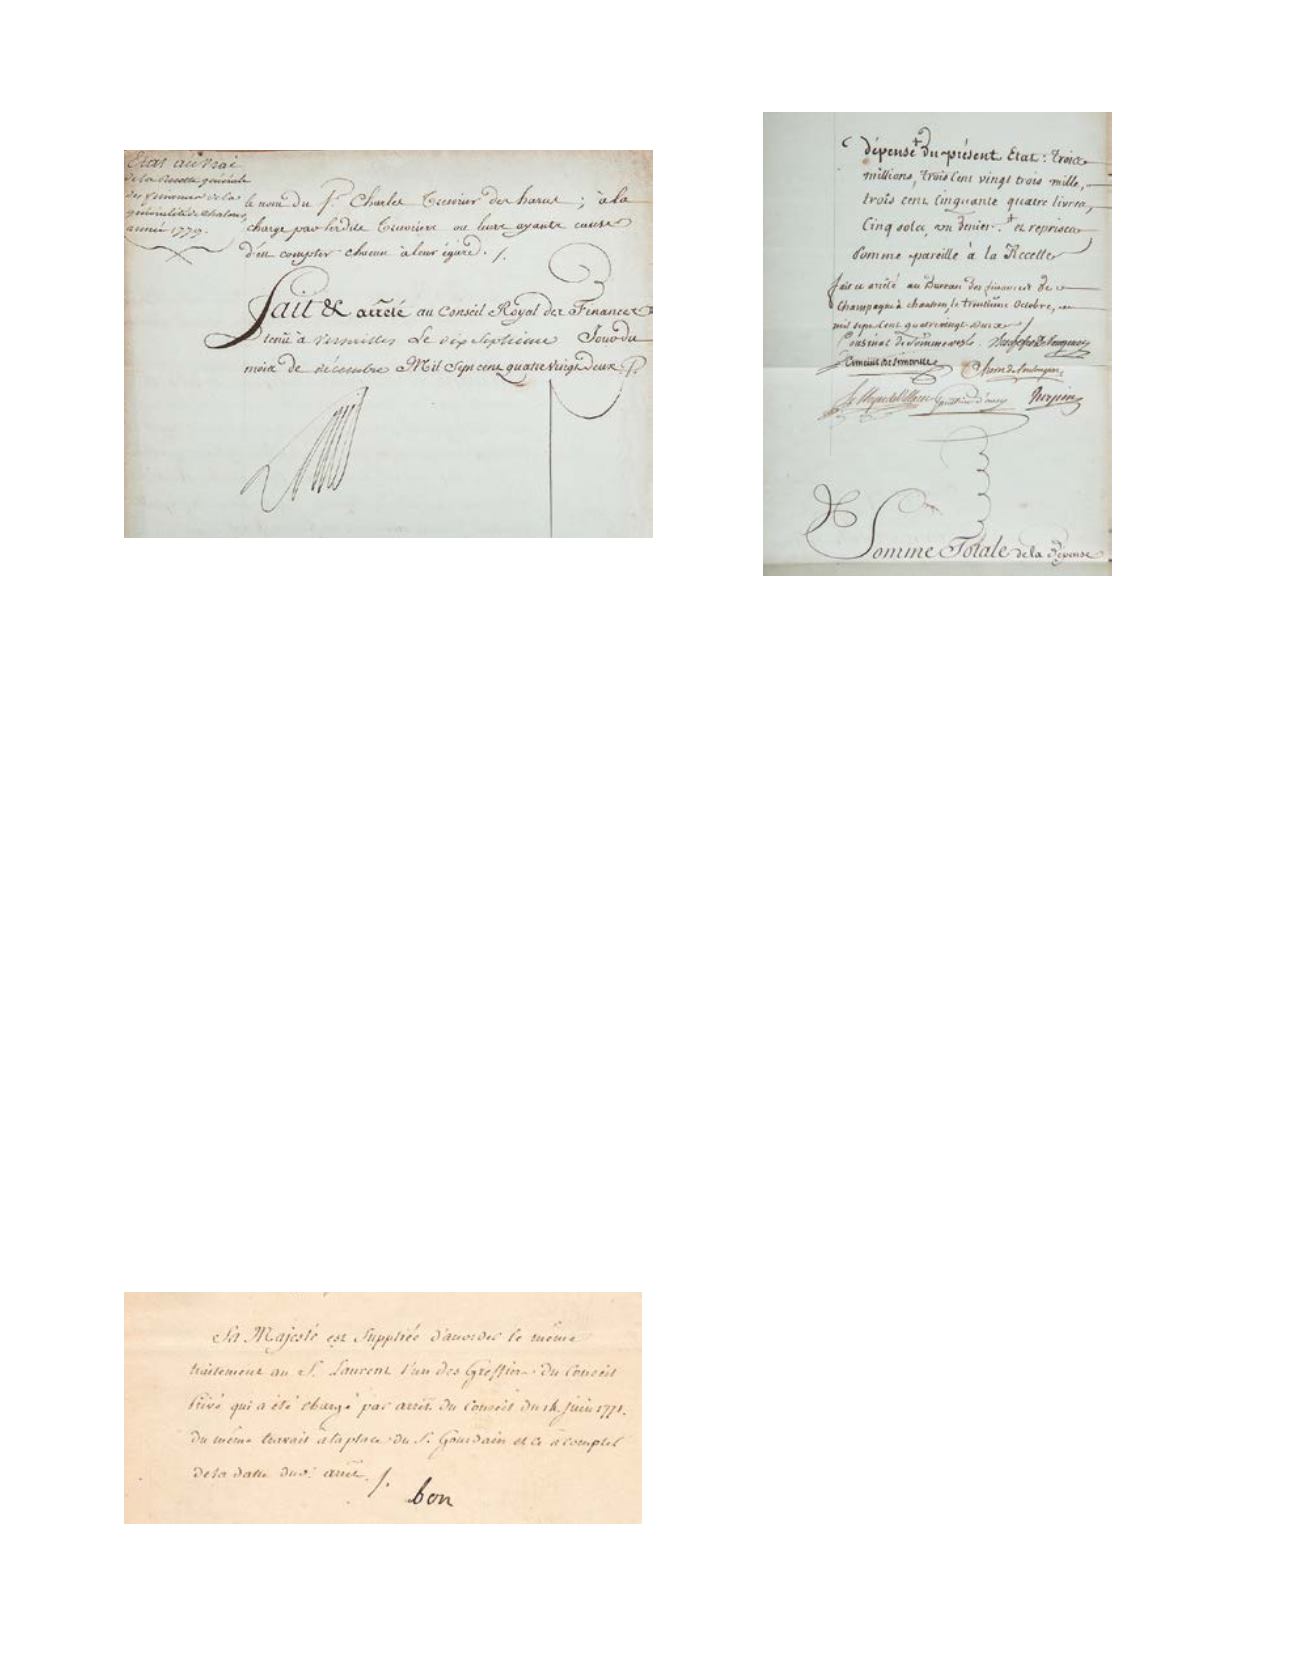 Etat au vrai
de la Recette générale
des finances de la
généralité de Chalons,
année 1779.
le nom du S.r Charles Cuvrier des harus ; à la
charge par lesdits ou leurs ayants cause
d'en compter chacun à leur égard ./.
Fait & arrêté au Conseil Royal des Finances
tenu à Versailles Le dix Septieme Jour du
mois de décembre Mil Sept cent quatre vingt deux
dépense du présent Etat : trois
millions, trois Cent vingt trois mille,
trois cent Cinquante quatre livres,
Cinq sols, un denier. et reprises
Somme pareille à la Recette
fait et arrêté au Bureau des finances de
Champagne à chaalons, le trentième Octobre,
mil sept cent quatrevingt deux
Somme Totale de la Dépense
Sa Majesté est Suppliée d'accorder le même
traitement au S. Laurent l'un des Greffiers du Conseil
Privé qui a été chargé par arrêt du Conseil du 14 Juin 1771.
du même travail à la place du S. Gourdain et ce à compter
de la datte dud. arrêt ./.
bon